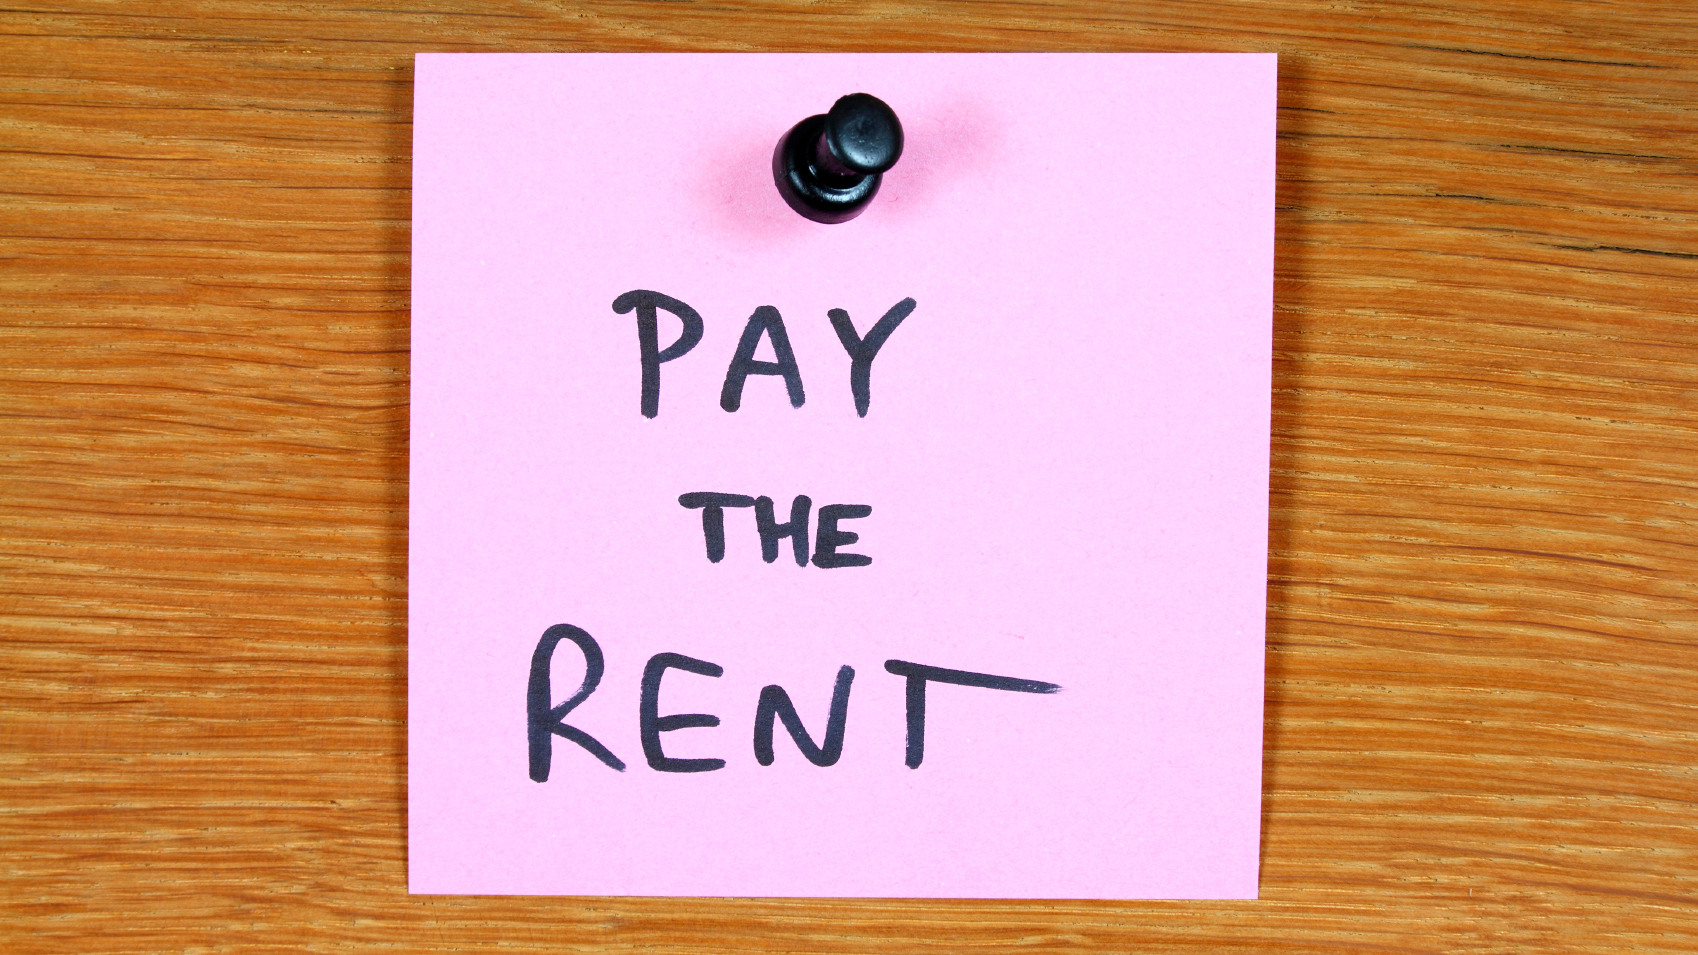 PAY
THE
RENT